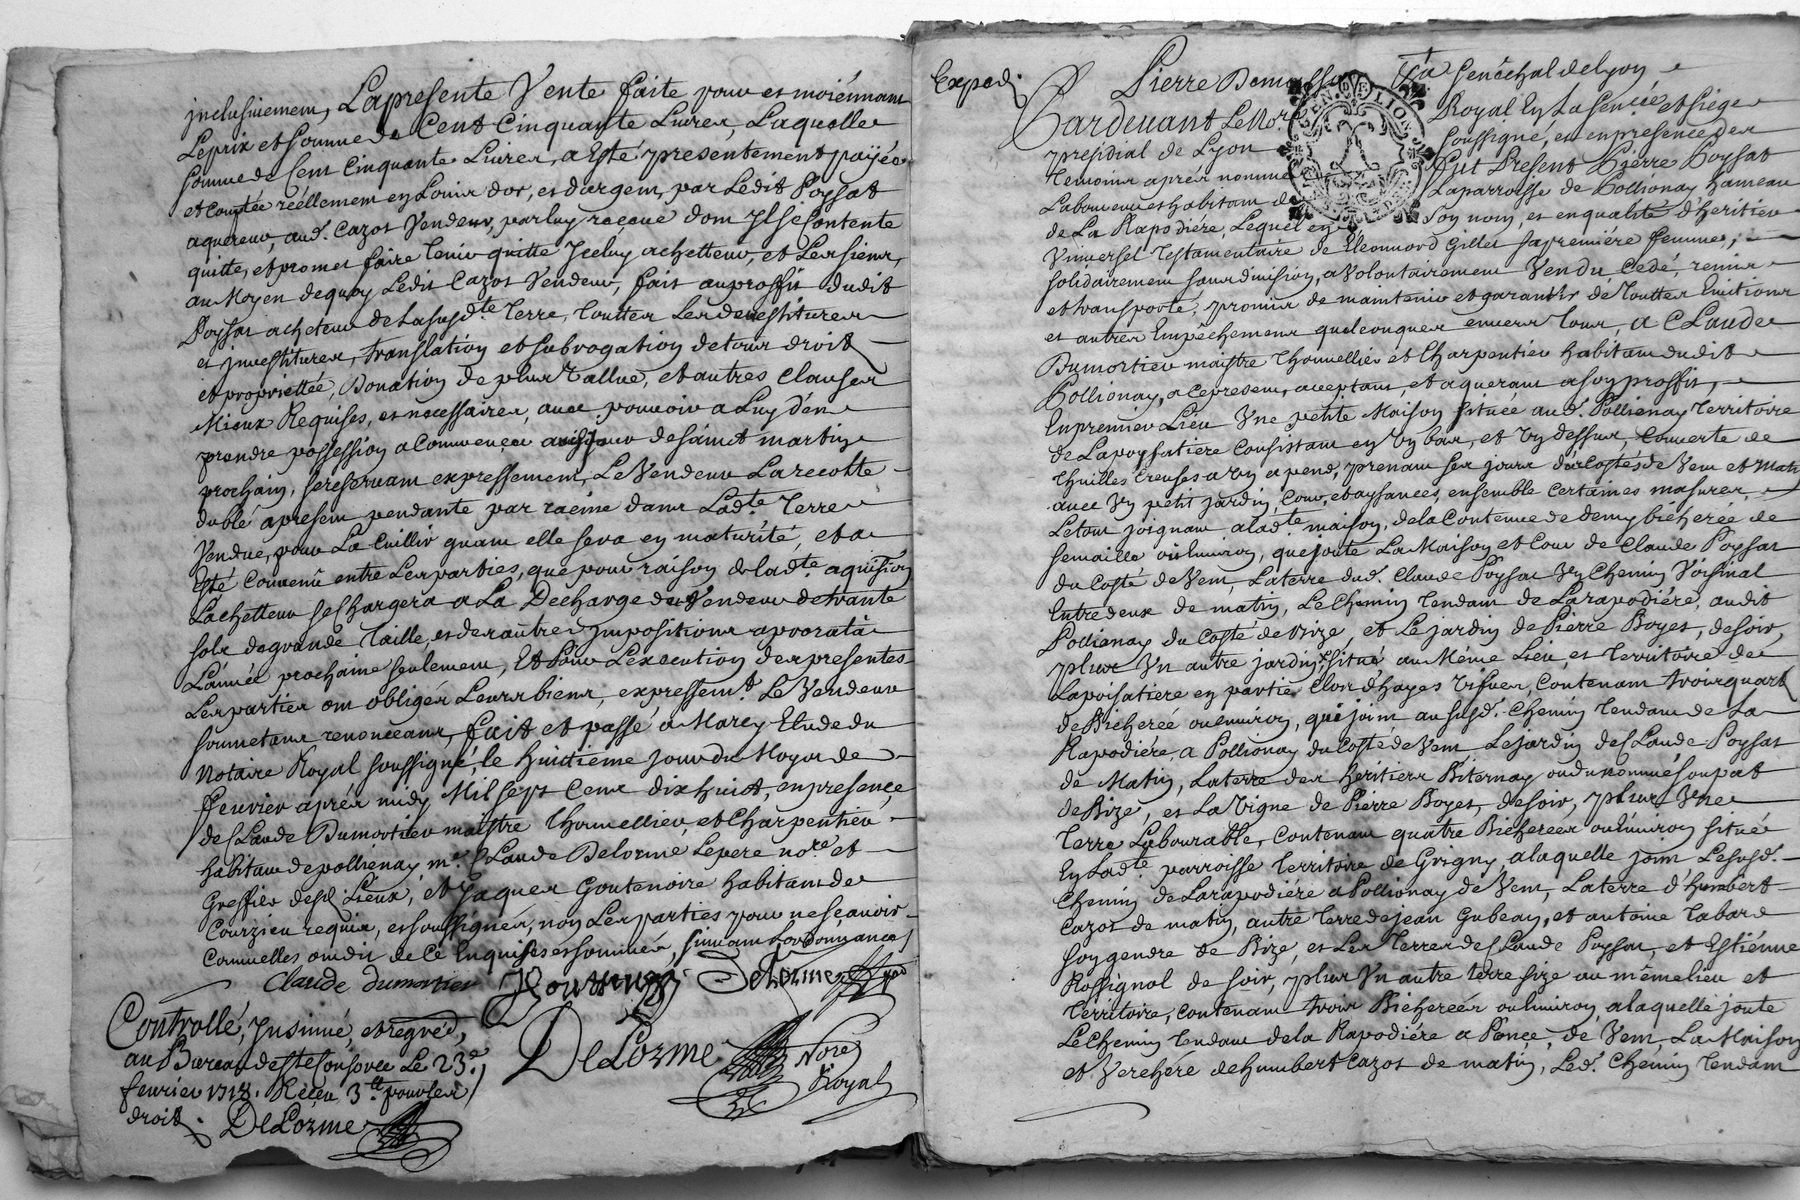 jnclusiuement, La presente Vente faite pour et moiennant
Le prix et somme de Cent Cinquante Liures, Laquelle
somme de Cent Cinquante Liures, a Esté presentement payée
et comptée réellement en Louis d'or, et d'argent, par Ledit Poysat
aquereur, aud. Cazot Vendeur, par luy reçeue dont Il se Contente
quitte, et promet faire tenir quitte Iceluy achetteur, et Les siens,
au Moyen de quoy Ledit Cazot Vendeur, fait au proffit dudit
Poysat acheteur de La susd.te Terre, touttes Les deuestitures
et jnuestitures, translation et subrogation de tous droits
et proprietté, Donation de plus Vallue, et autres Clauses
Mieux Requises, et necessaires, auec pouuoir a Luy d'en
prendre possession a Commencer au jour de sainct martin
prochain, se reseruant expressement, Le Vendeur La recolte
du blé apresent pendante par raçine dans Lad.te Terre
Vendue, pour La Cuillir quant elle sera en maturité, et a
Esté Conuenu entre Les parties, que pour raison de lad.te aquision
L'achetteur se Chargera a La Décharge du Vendeur de trante
sols de grande Taille, et des autres Impositions a proorata
L'année prochaine seulement, Et Pour L'execution des presentes
Les parties ont obligés Leurs biens, expressem.t Le Vendeur
soumetans renonceans, fait et passé a Marcy Etude du
Notaire Royal soussigné, le huictieme jour du Moys de
feurier aprés midy Mil sept Cent dix huict, en presençe
de Claude Dumortier maistre Thonnellier, et Charpentier
habitant de pollienay m.e Claude Delorme Le pere no.re et
Greffier desd. Lieux, et Jaques Goutenoire habitant de
Courzieu requis, et soussignés, non Les parties pour ne sçauoir
Comme elles ont dit de Ce Enquises et sommées, suiuant Lordonnance
Claude dumortier Delorme
Controllé, Insinué, et regré,
au Bureau de Ste Consorce Le 23.e
feurier 1718. Reçeu 3.tt pour les
droits. DeLorme
DeLorme Nore
Royal
Exped.
Pardeuant Le No.re Royal En La Senêc.ée et Siége
presidial de Lyon soussigné, et en presençe des
Temoins aprés nommés fut Present Pierre Poysat
Laboureur et habitant de La parroisse de Pollionay hameau
de La Rapodiére, Lequel en son nom, et en qualité d'heritier
Vniuersel Testamentaire de Eleonnord Gillet sa premiére femme,
solidairement sans diuision, a Volontairement Vendu Cedé, remis
et transporté, promis de maintenir et garantir de touttes Euictions
et autres Empêchements quelconques enuers tous, a Claude
Dumortier maistre Thonnellier et Charpentier habitant dudit
Pollionay, a Ce present, acceptant, et aquerant a son proffit,
En premier Lieu Vne petite Maison située aud. Pollienay Territoire
de La poysatiere Consistant en Vn bas, et Vn dessus, Couuerte de
Thuilles Creuses a Vn apend, prenant ses jours des Costés de Vent et Matin
auec Vn petit jardin, Cour, et aysances, ensemble Certaines masures,
Le tout joignant a lad.te maison, de la Contenue de demy bicherée de
semaille ou Enuiron, que joute La Maison et Cour de Claude Poysat
du Costé de Vent, La terre dud. Claude Poysat Vn Chemin Voisinal
Entre deux de matin, Le Chemin Tendant de La rapodiére, audit
Pollienay du Costé de Bize, et Le jardin de Pierre Boyes, de soir,
plus Vn autre jardin situé au Même Lieu, et Territoire de
La poisatiere en partie Clos d'hayes Vifues, Contenant trois quarts
de Bicherée ou enuiron, qui joint au susd. Chemin Tendant de La
Rapodiére, a Pollionay du Costé de Vent Le jardin de Claude Poysat
de Matin, La terre des heritiers Biternay ou du nommé soupat
de Bize, et La Vigne de Pierre Boyes, de soir, plus Vne
Terre Labourable, Contenant quatre Bicherées ou Enuiron située
En Lad.te parroisse Territoire de Grigny a laquelle joint Le susd.
Chemin de La rapodiére a Pollionay de Vent, La terre d'humbert
Cazot de matin, autre Terre de jean Gubean, et antoine Tabard
son gendre de Bize, et Les Terres de Claude Poysat, et Estiénne
Rossignol de soir, plus Vn autre terre size au même lieu et
Territoire, Contenant trois Bicherées ou Enuiron, a laquelle joute
Le Chemin Tendant de la Rapodiére a Ponce, de Vent, La Maison
et Verchére de humbert Cazot de matin, Led. Chemin Tendant